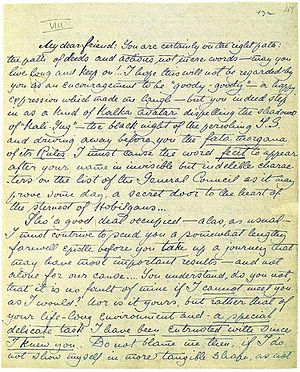 VIII
47
My dear friend: You are certainly on the right path:
the path of deeds and actions not mere words — may you
live long and keep on!.. I hope this will not be regarded by
you as an encouragement to be "goody-goody" — a happy
expression which made me laugh — but you indeed step
in as a kind of Kalka avatar dispelling the shadows
of "Kali-Yug" the black night of the perishing T.S.
and driving away before you the fata morgana
of its Rules. I must cause the word to appear
after your name in invisible but indelible charac-
ters on the list of the General Council as it may
prove some day a secret door to the heart of
the sternest of Hobilgans...
Tho' a good deal occupied — alas, as usual —
I must contrive to send you a somewhat lengthy
farewell epistle before you take up a journey that
may have most important results — and not
alone for our cause... You understand, do you not
that it is no fault of mine if I cannot meet you
as I would? Nor is it yours, but rather that of
your life-long environment and a special
delicate task I have been entrusted with since
I knew you. Do not blame me then, if I do
not show myself in more tangible shape, as not